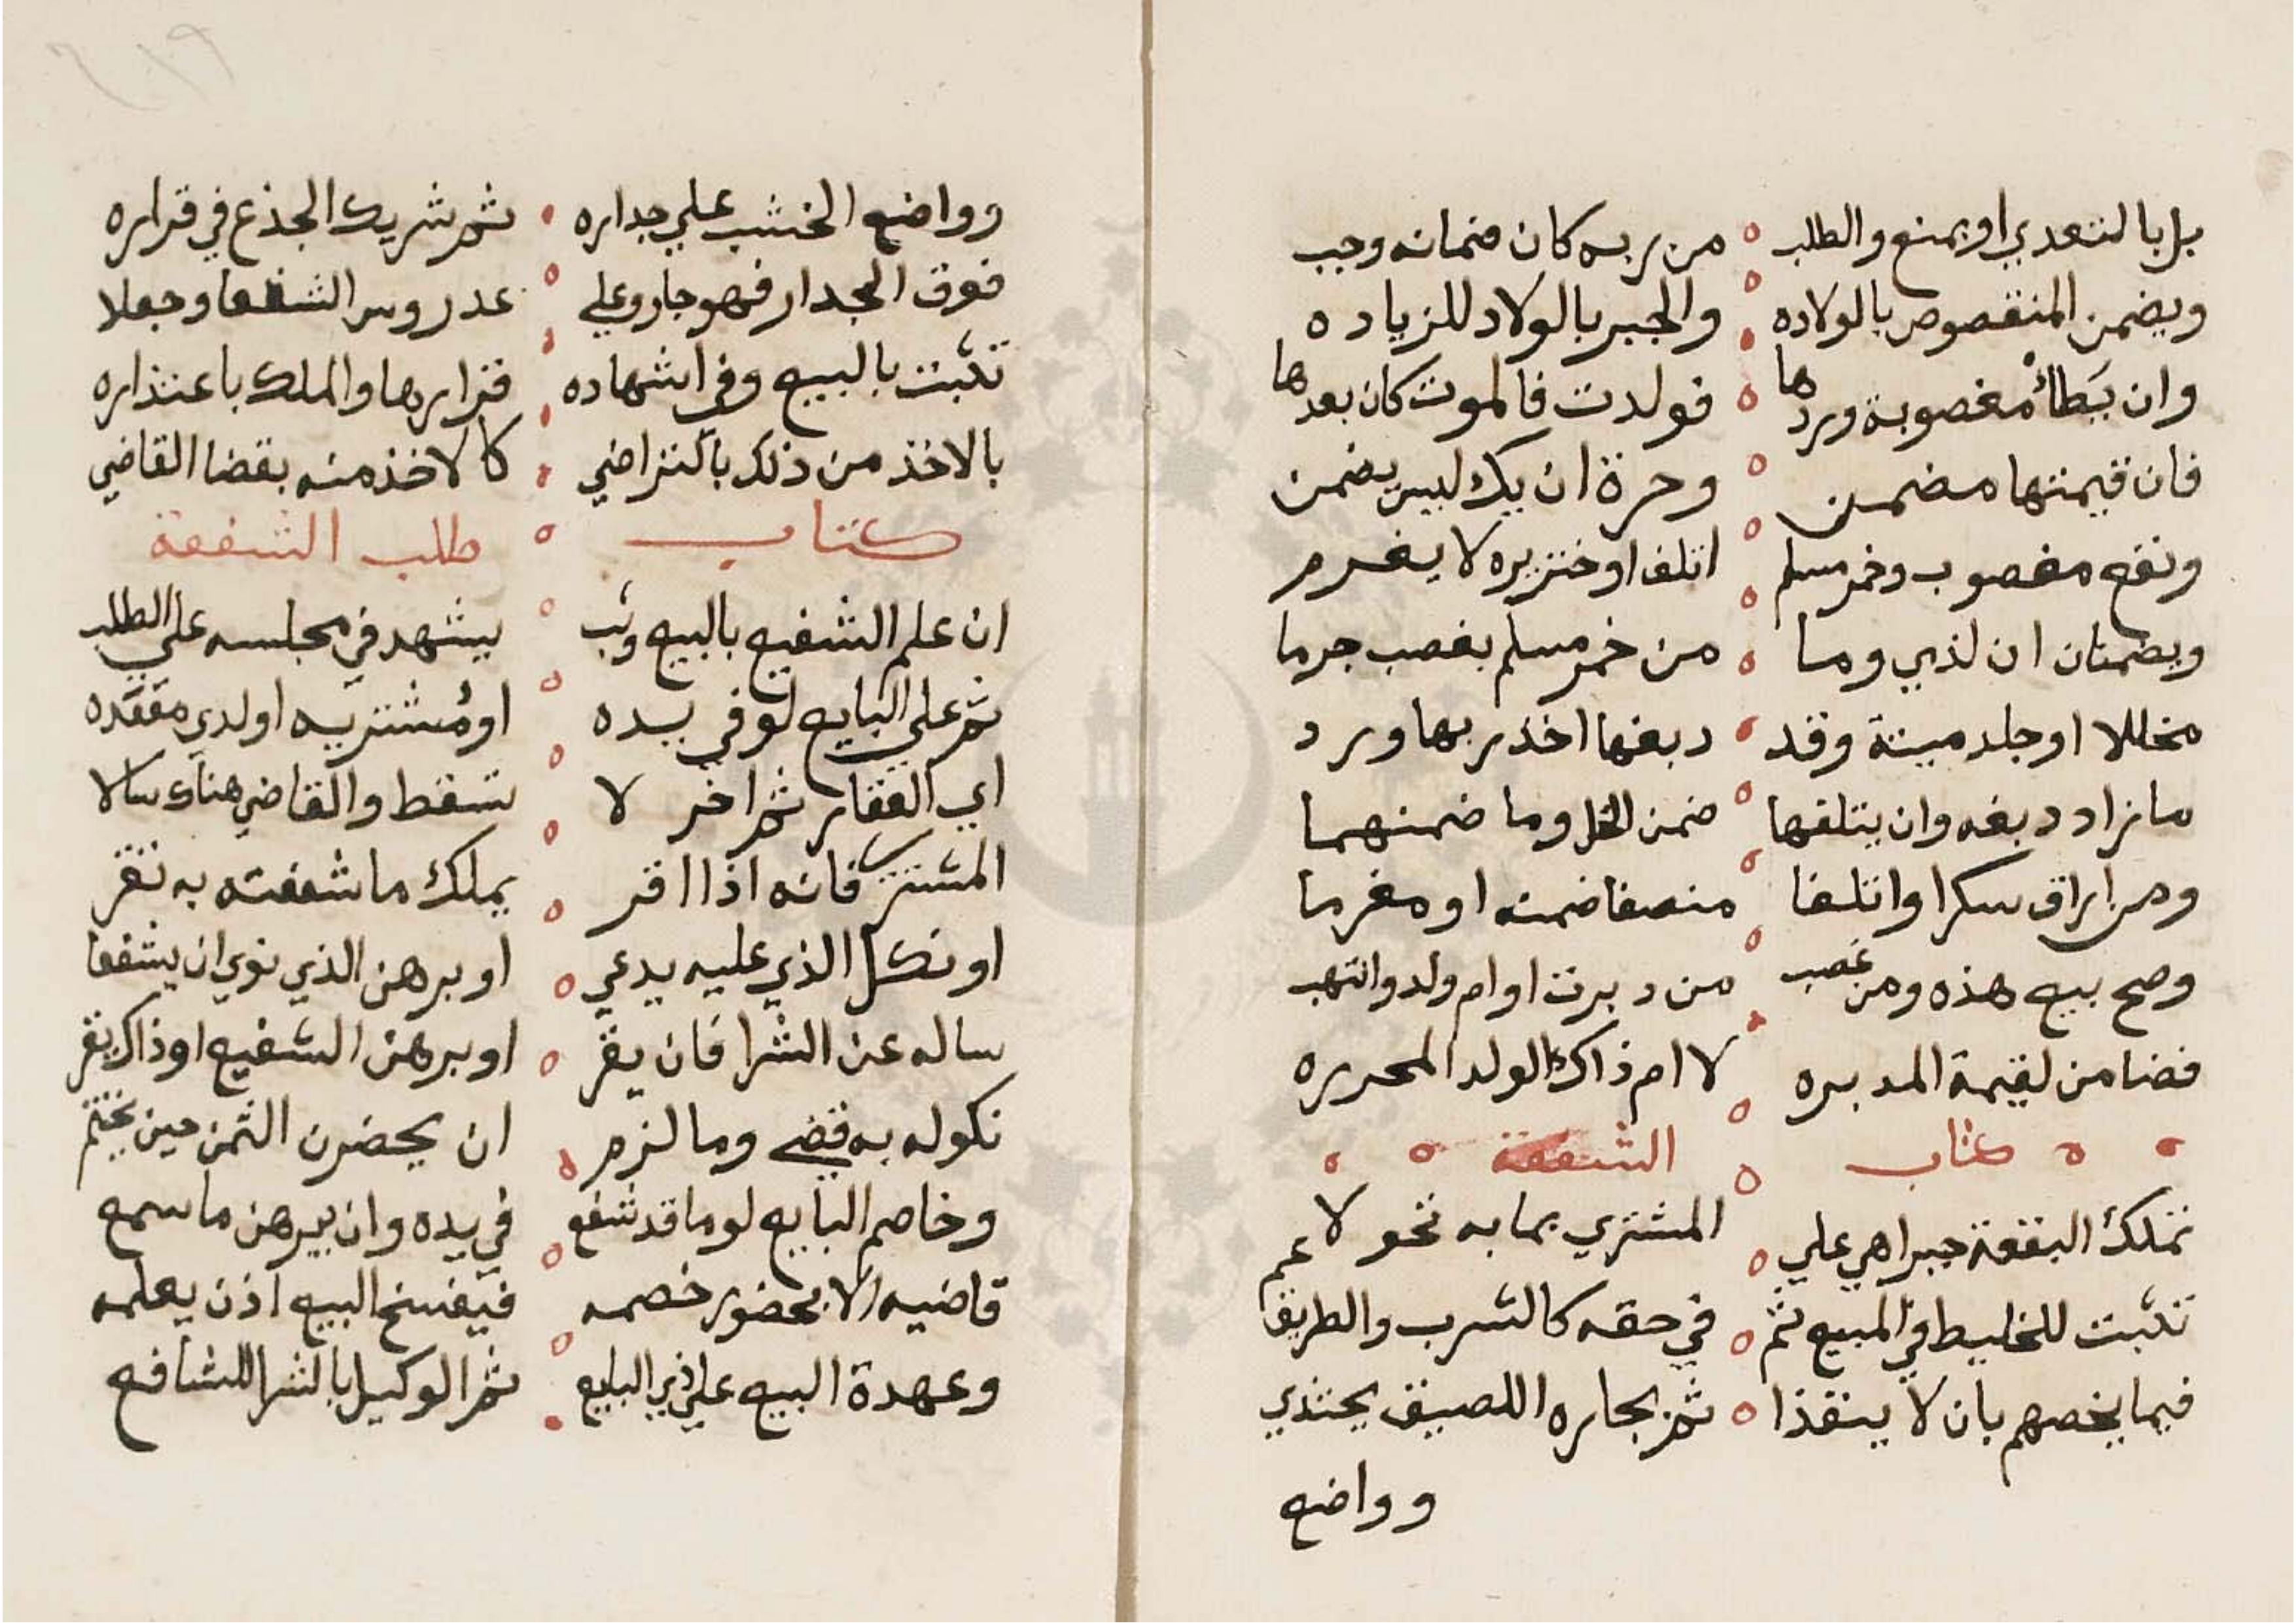 بل بالتعدي او بمنع والطلب من ربه كان ضمانه وجب
ويضمن المنقصوص بالولاده والجبر بالولاد للزياده
وان يطأ مغصوبة وردها فولدت فالموت كان بعدها
فان قيمتها مضمن وحرة ان يك ليس يضمن
ونفع مغصوب وخمر مسلم اتلف او خنزيره لا يغرم
ويضمنان ان لذي وما من خمر مسلم بغصب جرما
مخللا او جلد ميتة وقد دبغها اخذ ربها ورد
ما زاد دبغه وان يتلفها ضمن الخل وما ضمنهما
ومن اراق سكرا واتلفا منصفا ضمنه او مغرما
وصح بيع هذه ومن غصب من دبرت او ام ولد وانتهب
فضامن لقيمة المدبره لا ام ذاك الولد المحرره
كتاب الشفعة
تملك البقعة جبرا هي علي المشتري بما به نحو لا عم
تثبت للخليط في المبيع ثم في حقه كالشرب والطريق
فيما يخصهم بان لا ينفذا ثم بجاره اللصيق يحتذي
وواضع
وواضع الخشب علي جداره ثم شريك الجذع في قراره
فوق الجدار فهو جار وعلي عد روس الشفعا وجعلا
تثبت بالبيع وفي اشهاده قرارها والملك باعتذاره
بالاخذ من ذلك بالتراضي كالاخذ منه بقضا القاضي
كتاب طلب الشفعة
ان علم الشفيع بالبيع وثب يشهد في مجلسه علي الطلب
ثم علي البايع لو في يده او مشتريه او لدي مقعده
اي العقار ثم اخر لا تسقط والقاضي هناك سالا
المشتري فانه اذا اقر يملك ما شفعته به تقر
او نكل الذي عليه يدعي او برهن الذي نوي ان يشفعا
ساله عن الشرا فان يقر او برهن الشفيع او ذاك يقر
نكوله به قضي وما لزم ان يحضرن الثمن حين يختم
وخاصم البايع لو ما قد شفع في يده وان يبرهن ما سمع
قاضيه الا بحضور خصمه فيفسخ البيع اذن يعلمه
وعهدة البيع علي ذي البايع ثم الوكيل بالشرا للشافع